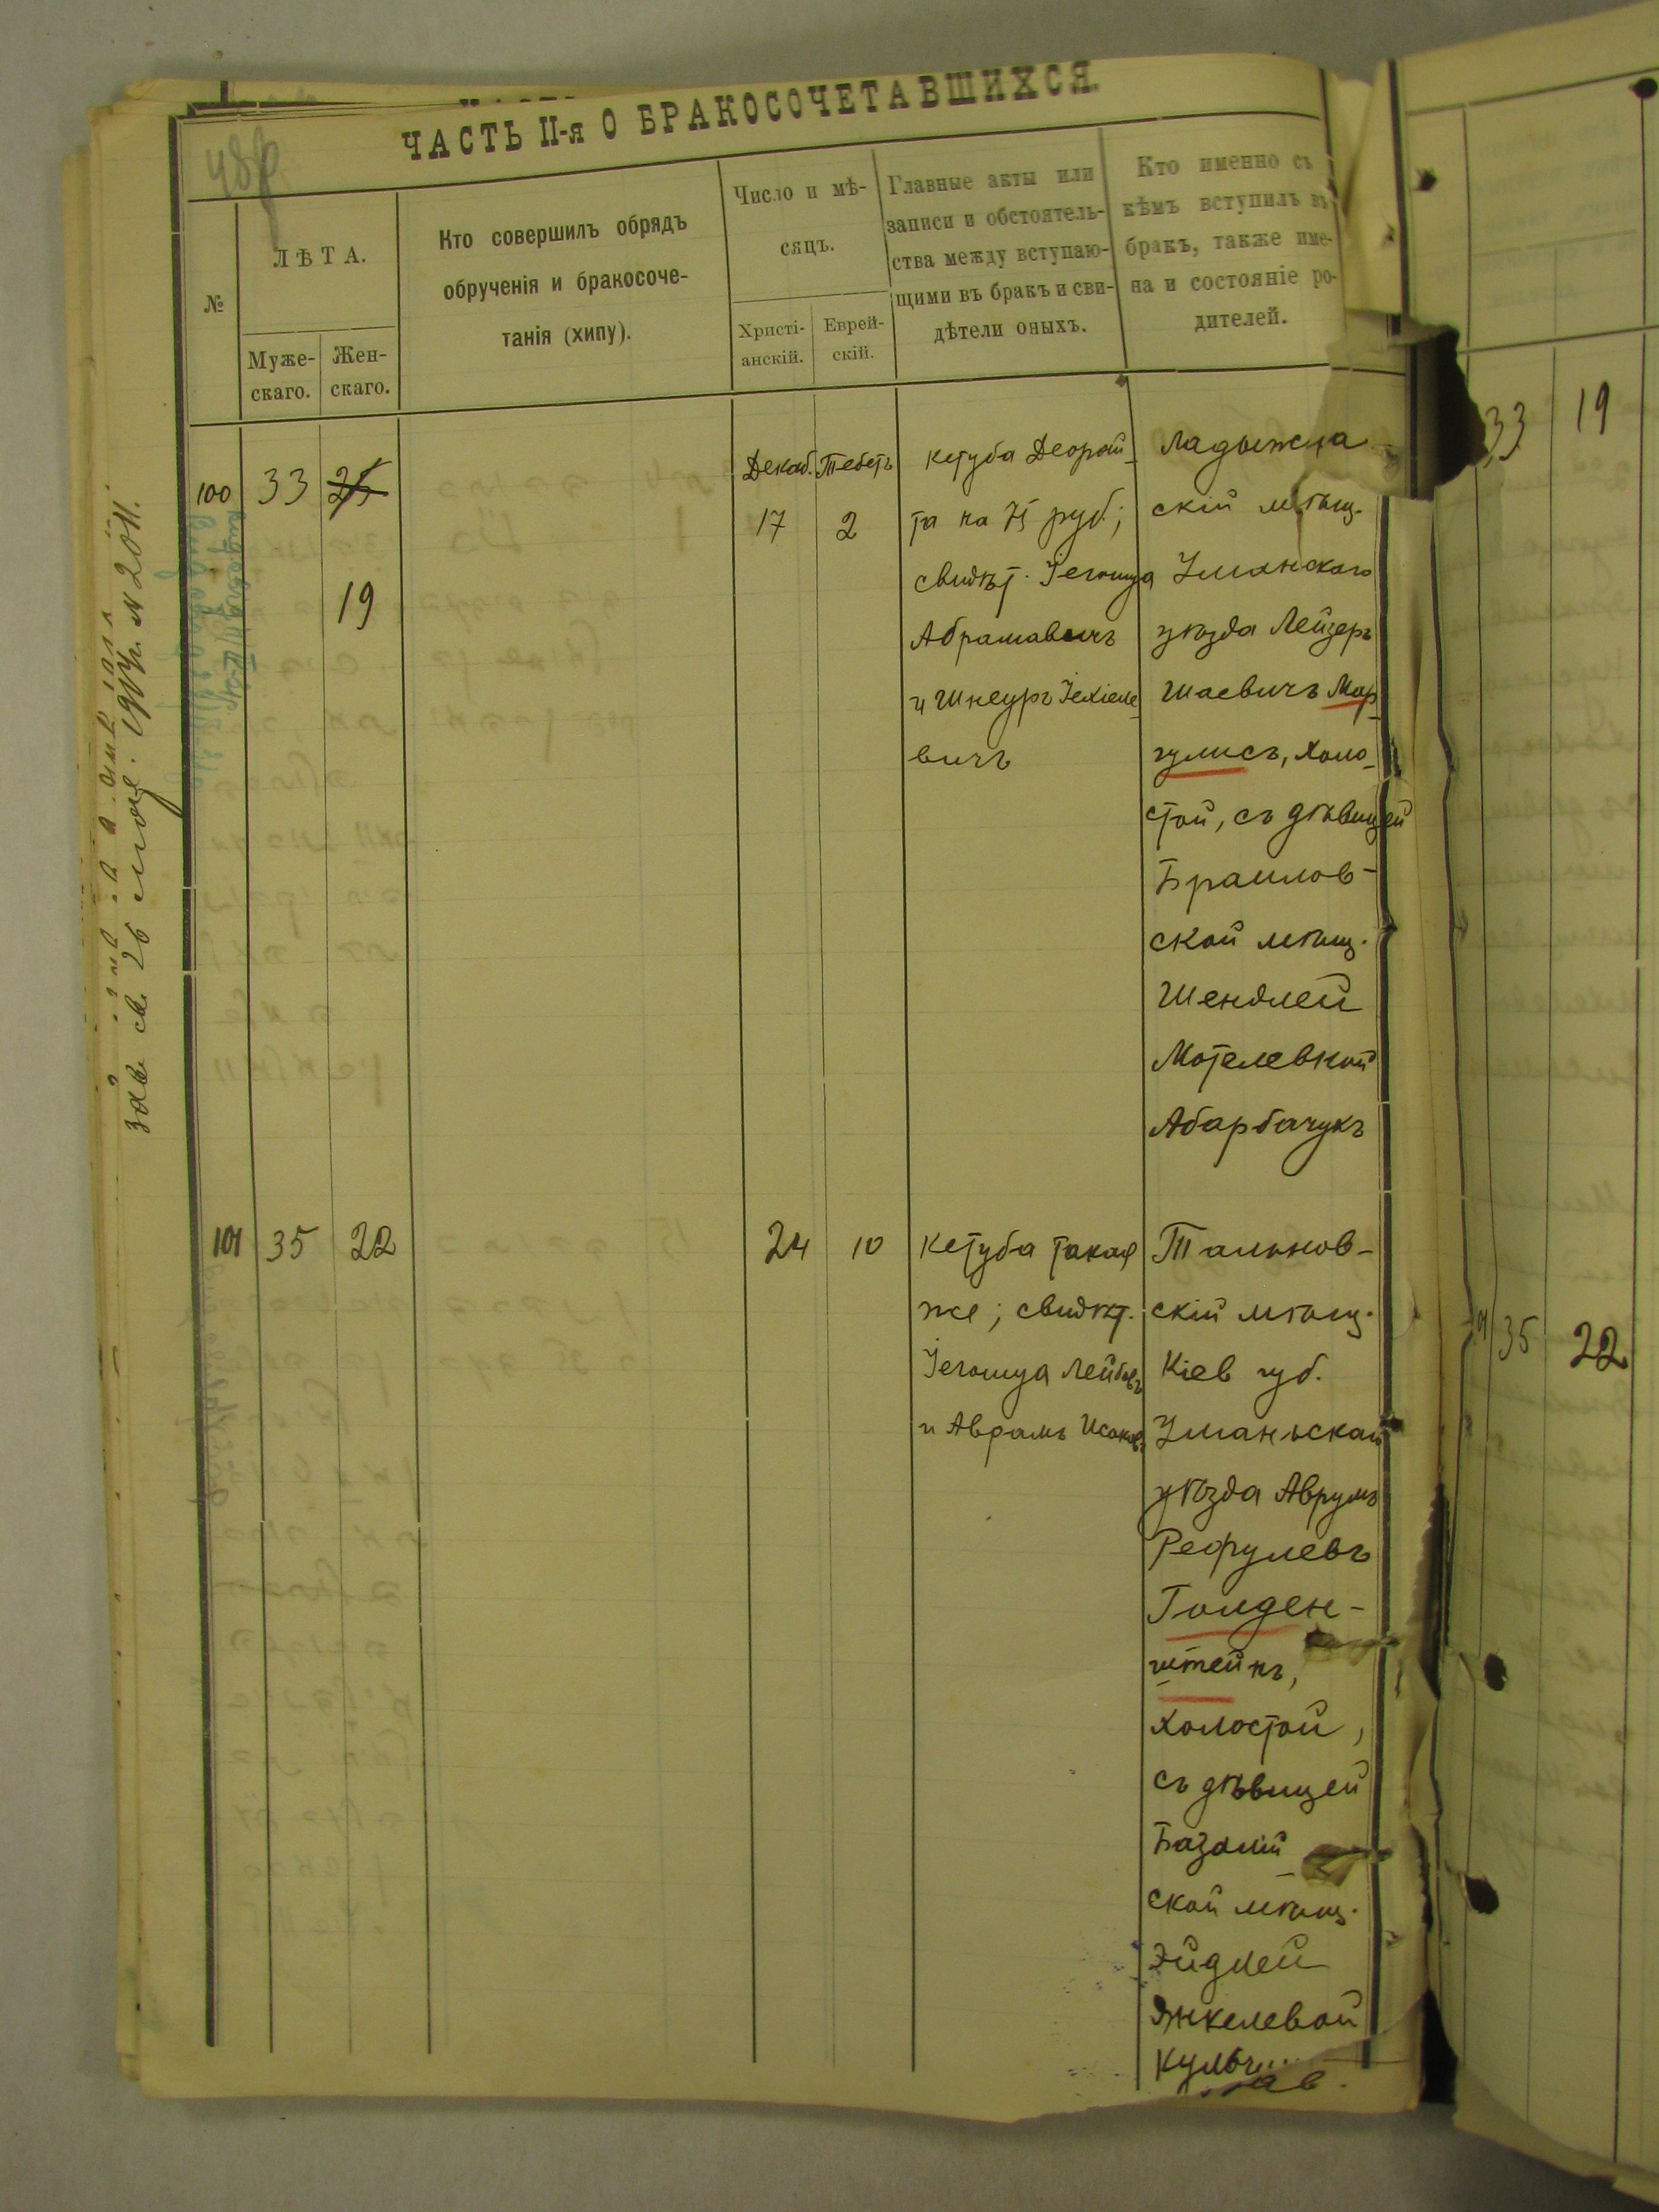 ЧАСТЬ II-я О БРАКОСОЧЕТАВШИХСЯ.
№
ЛѢТА.
Муже-
скаго.
Жен-
скаго.
Кто совершилъ обрядъ
обрученія и бракосоче-
танія (хипу).
Число и мѣ-
сяцъ.
Христі-
анскій.
Еврей-
скій.
Главные акты или
записи и обстоятель-
ства между вступаю-
щими въ бракъ и сви-
дѣтели оныхъ.
Кто именно съ
кѣмъ вступилъ въ
бракъ, также име-
на и состояніе ро-
дителей.
100 33 25
19
Декаб. Тебетъ
17 2
Кетуба Деорай-
та на 75 руб.;
свидѣт. Іегошуа
Абрамавичъ
и Шнеуръ Іехіеле-
вичъ
скій мѣщ.
Уманского
уѣзда Лейзеръ
Шаевичъ Мар-
гулисъ, холо-
стой, съ дѣвицей
Браилов-
ской мѣщ.
Шендлей
Мотелевной
Абарбачукъ
101 35 22
24 10
Кетуба такая
же; свидѣт.
Іегошуа Лейбовъ
и Аврамъ Исаковъ
Тальнов-
скій мѣщ.
Кіев губ.
Уманьскаго
уѣзда Аврумъ
Рефулевъ
Голден-
штейнъ,
холостой,
съ дѣвицей
Базалій-
ской мѣщ.
Эйдлей
Янкелевой
33 19
35 22